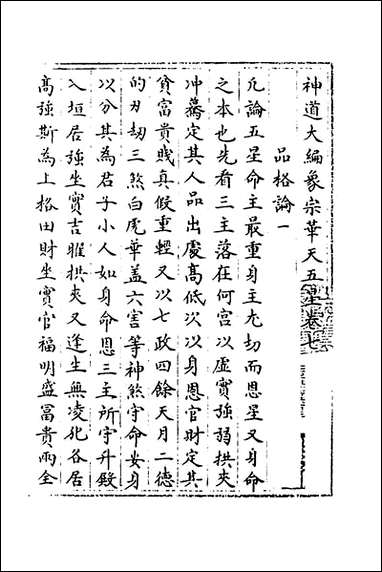 神道大編象宗華天五星卷七
品格論一
凡論五星命主最重身主尤切而恩星又身命
之本也先看三主落在何宮以虛實強弱拱夾
冲驀定其人品出處高低次以身恩官財定其
貧富貴賤真假重輕又以七政四餘天月二德
的刃刼三煞白虎華盖六害等神煞守命安身
以分其為君子小人如身命恩三主所守升殿
入垣居強坐實吉曜拱夾又逢生無凌犯各居
髙強斯為上格田財坐實官福明盛冨貴兩全